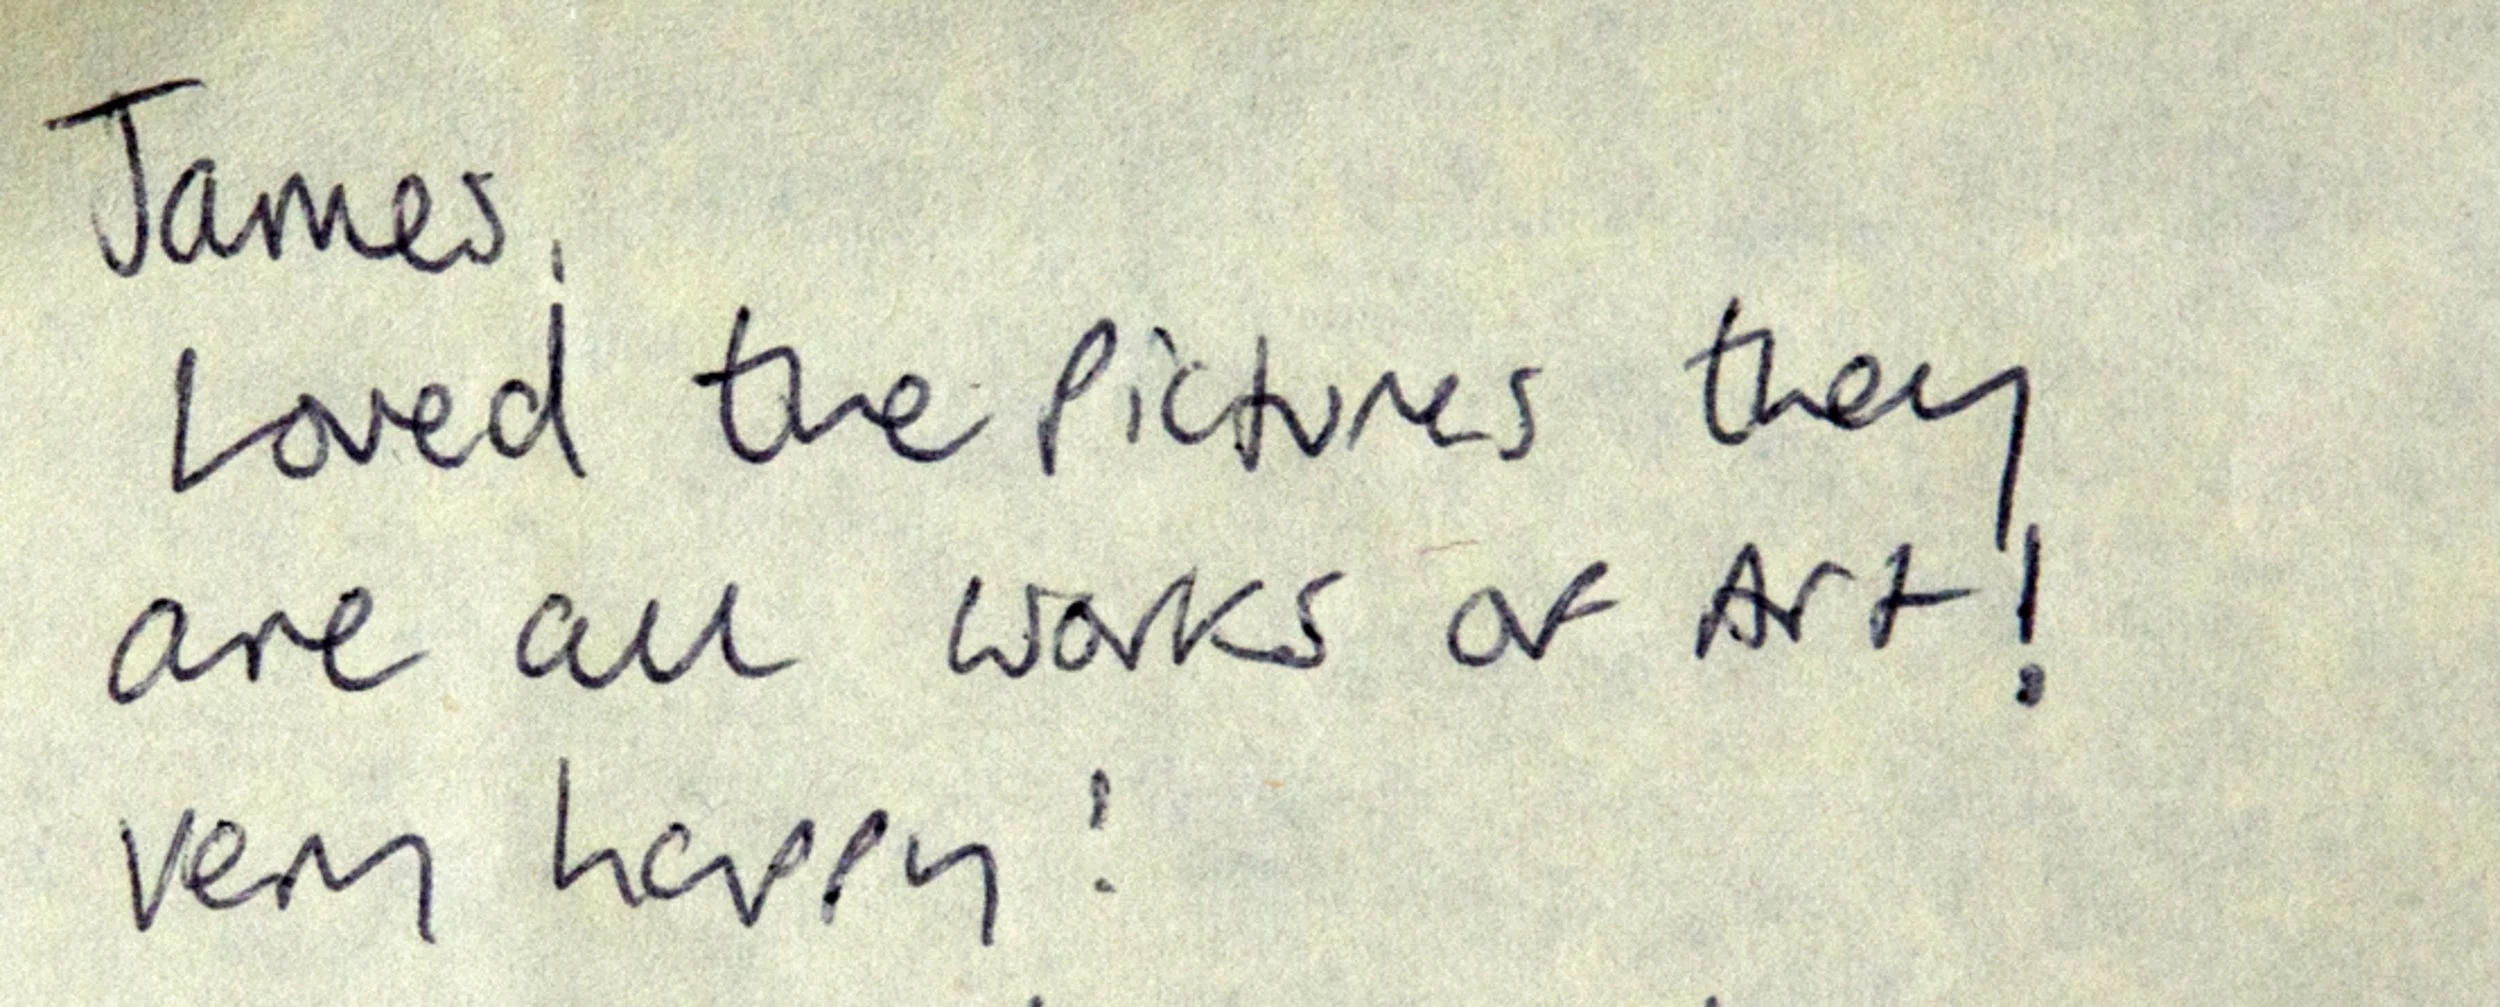 James,
Loved the Pictures they
are all works of Art!
very happy!